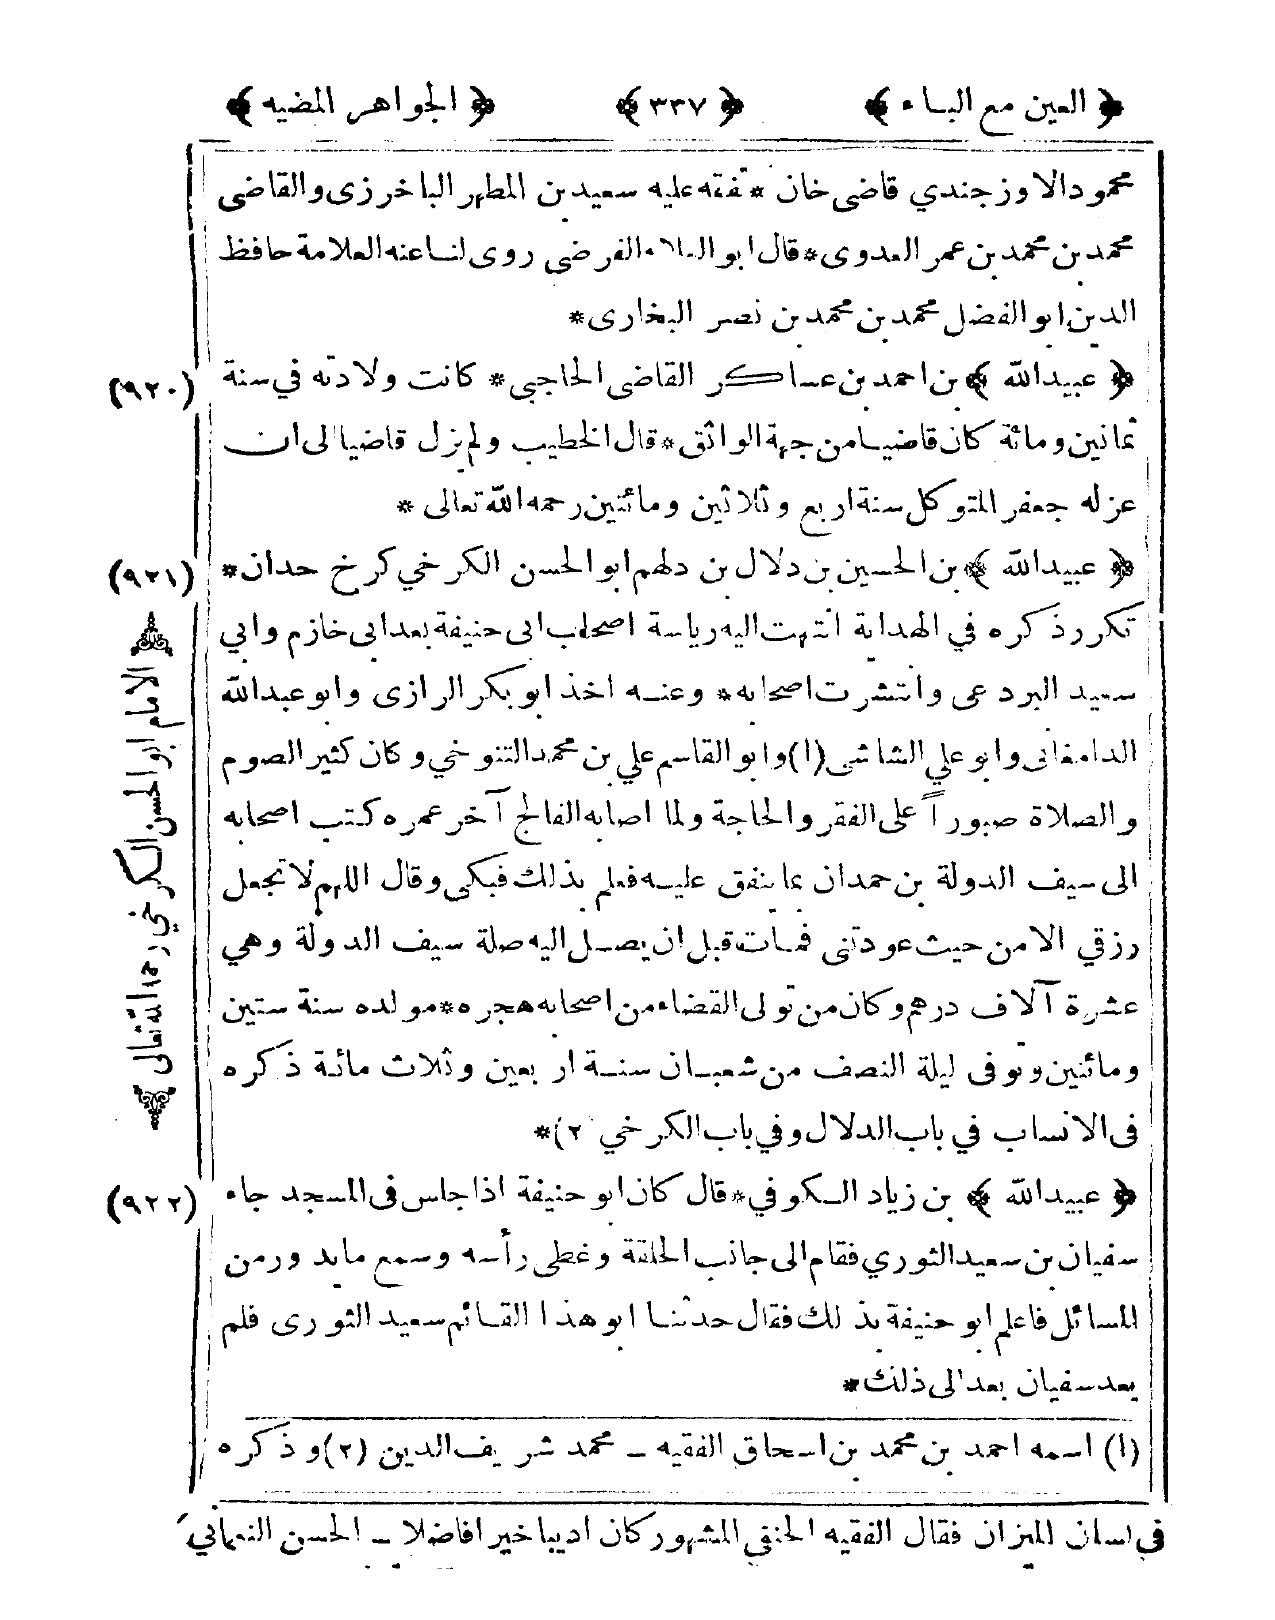 ﴿ العين مع الباء ﴾ ﴿ ٣٣٧ ﴾ ﴿ الجواهر المضيه ﴾
محمود الاوزجندي قاضى خان * تفقه عليه سعيد بن المطهر الباخرزى والقاضى
محمد بن محمد بن عمر العدوى * قال ابو العلاء الفرضى روى لنا عنه العلامة حافظ
الدين ابو الفضل محمد بن محمد بن نصر البخارى *
(٩٢٠) ﴿ عبيد الله ﴾ بن احمد بن عساكر القاضى الحاجبى * كانت ولادته في سنة
ثمانين ومائة كان قاضيا من جهة الواثق * قال الخطيب ولم يزل قاضيا الى ان
عزله جعفر المتوكل سنة اربع وثلاثين ومائتين رحمه الله تعالى *
(٩٢١) ﴿ عبيد الله ﴾ بن الحسين بن دلال بن دلهم ابو الحسن الكرخي كرخ حدان *
تكرر ذكره في الهداية انتهت اليه رياسة اصحاب ابى حنيفة بعد ابى خازم وابي
سعيد البردعى وانتشرت اصحابه * وعنه اخذ ابو بكر الرازى وابو عبد الله
الدامغانى وابو علي الشاشى (١) وابو القاسم علي بن محمد التنوخي وكان كثير الصوم
والصلاة صبوراً على الفقر والحاجة ولما اصابه الفالج آخر عمره كتب اصحابه
الى سيف الدولة بن حمدان بما ينفق عليه فعلم بذلك فبكى وقال اللهم لا تجعل
رزقي الا من حيث عودتنى فمات قبل ان يصل اليه صلة سيف الدولة وهي
عشرة آلاف درهم وكان من تولى القضاء من اصحابه هجره * مولده سنة ستين
ومائتين وتوفى ليلة النصف من شعبان سنة اربعين وثلاث مائة ذكره
فى الانساب في باب الدلال وفي باب الكرخي ٢) *
(٩٢٢) ﴿ عبيد الله ﴾ بن زياد الكوفي * قال كان ابو حنيفة اذا جلس فى المسجد جاء
سفيان بن سعيد الثوري فقام الى جانب الحلقة وغطى رأسه وسمع ما يدور من
المسائل فاعلم ابو حنيفة بذلك فقال حدثنا ابو هذا القائم سعيد الثورى فلم
يعد سفيان بعد الى ذلك *
الامام ابو الحسن الكرخي رحمه الله تعالى
(١) اسمه احمد بن محمد بن اسحاق الفقيه ـ محمد شريف الدين (٢) وذكره
في لسان الميزان فقال الفقيه الحنفي المشهور كان اديبا خيرا فاضلا ـ الحسن النعماني